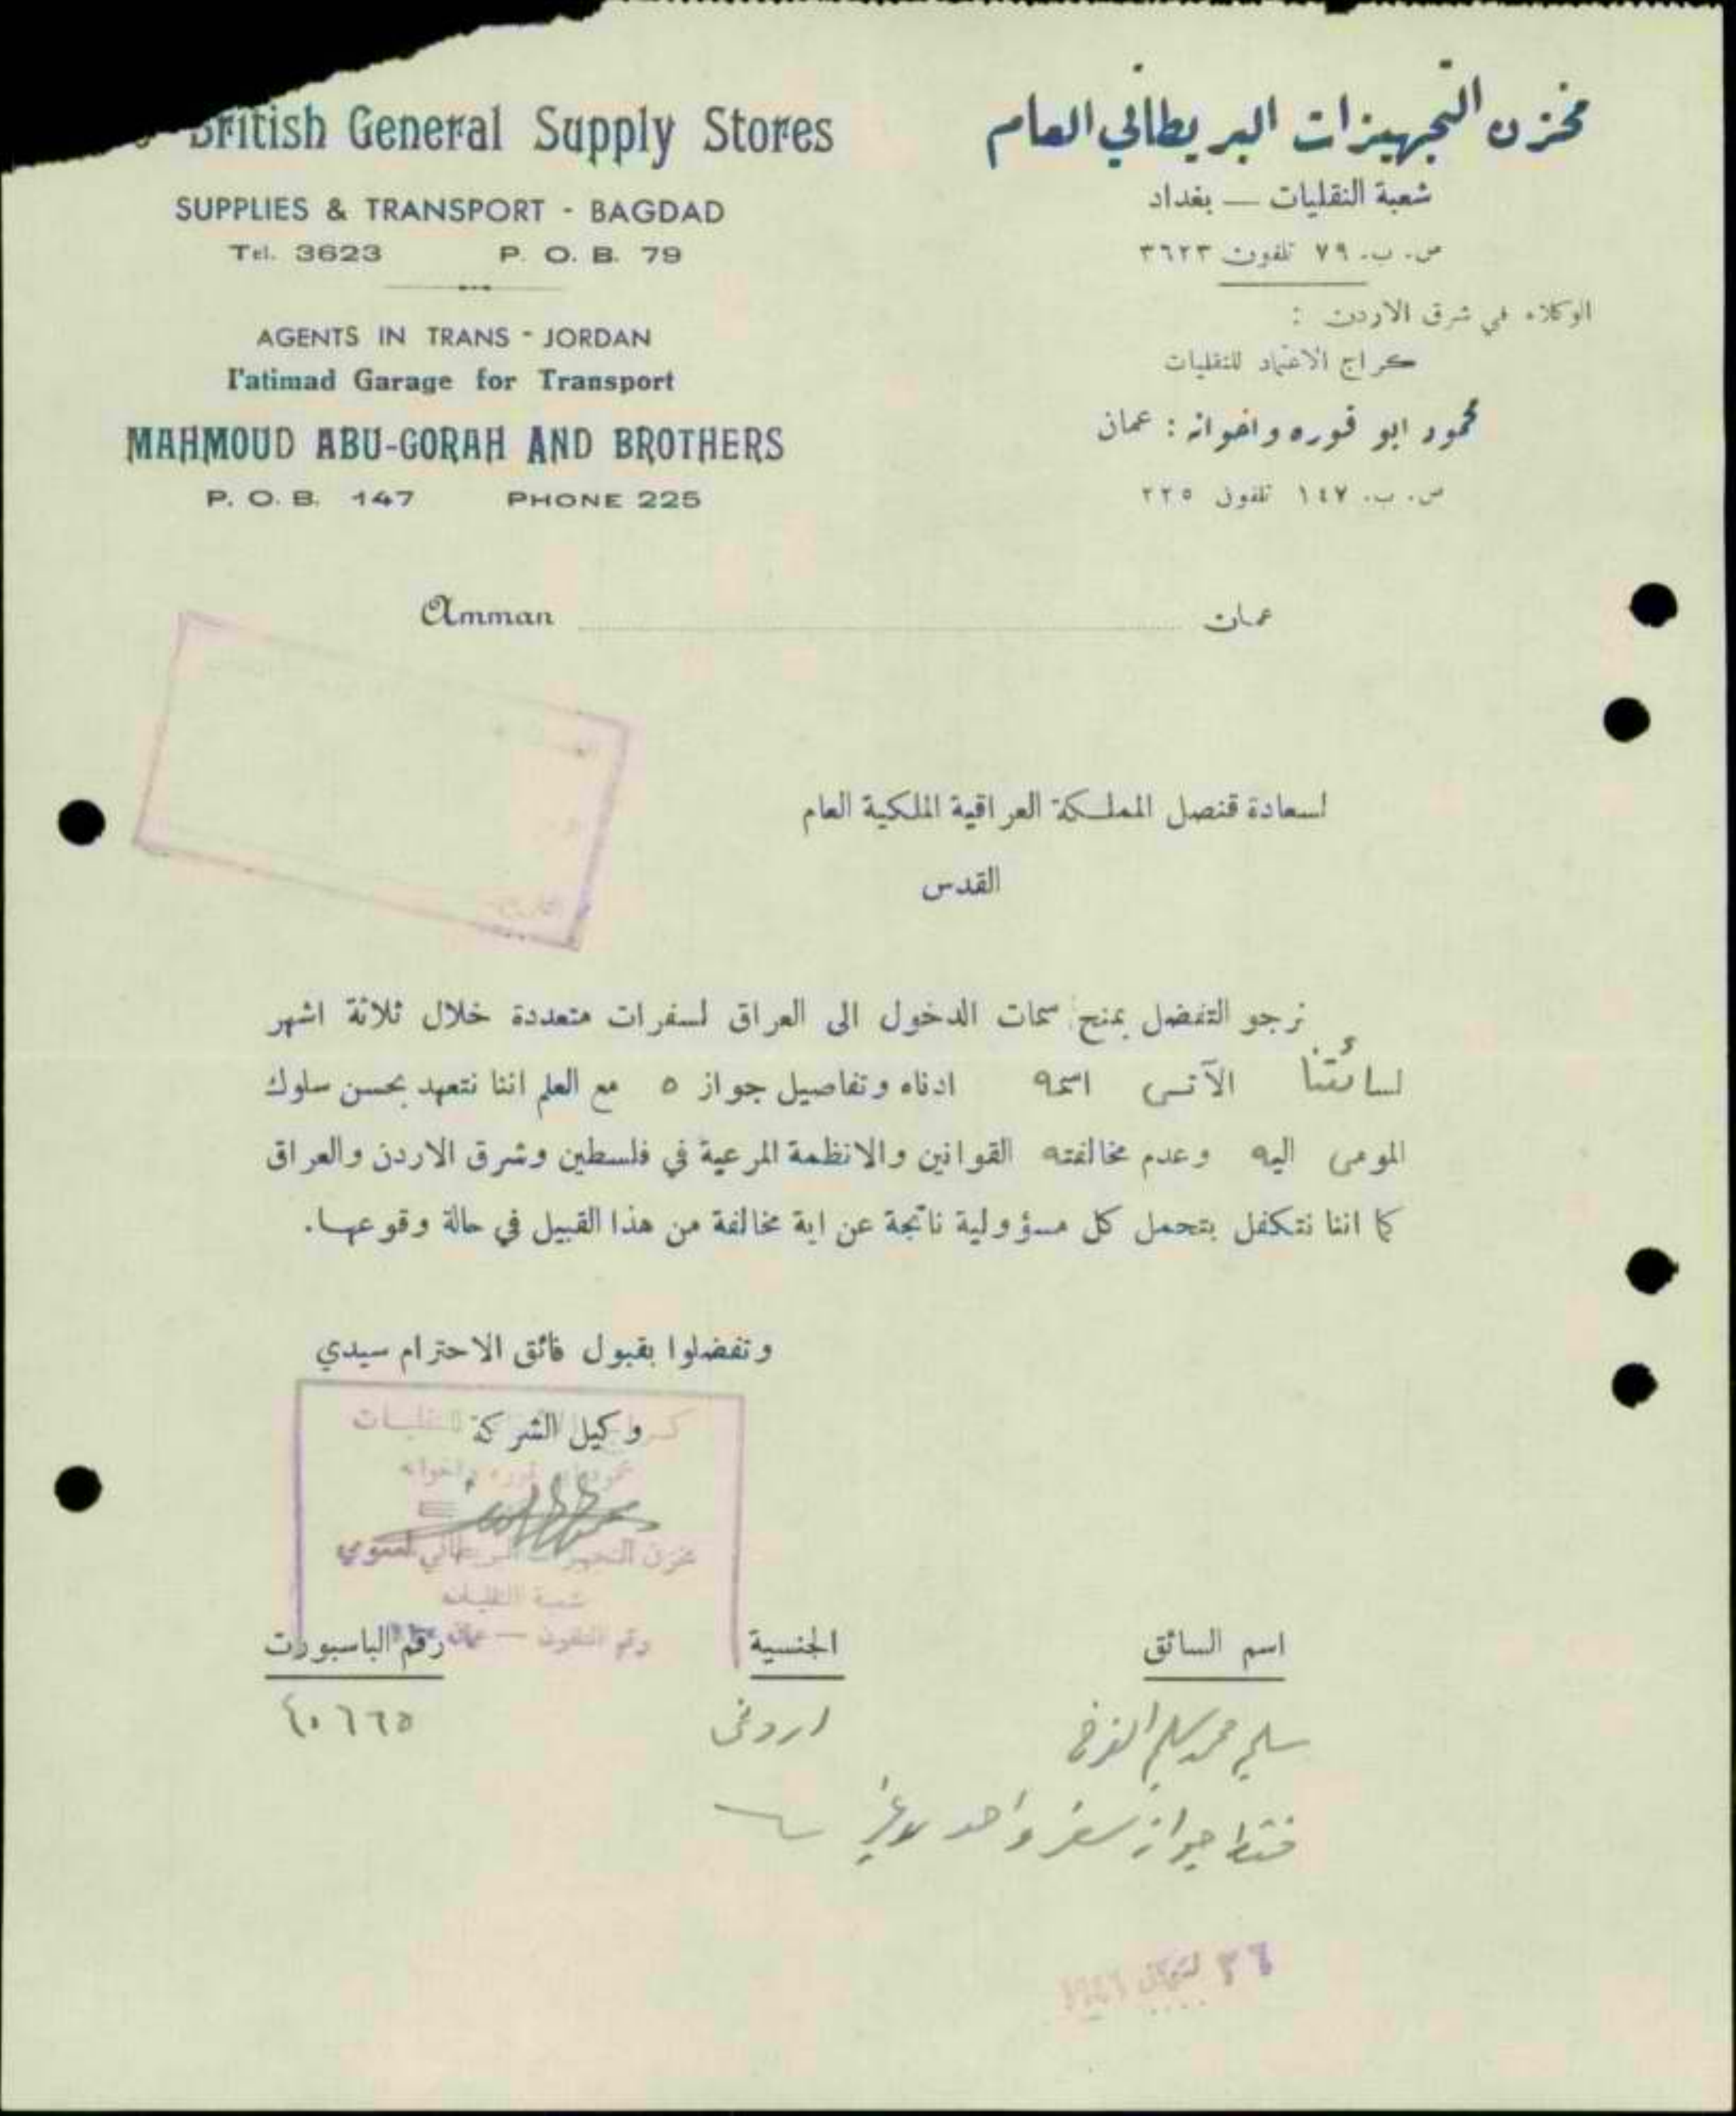 British General Supply Stores
SUPPLIES & TRANSPORT - BAGDAD
Tel. 3623 P. O. B. 79
AGENTS IN TRANS - JORDAN
I'atimad Garage for Transport
MAHMOUD ABU-GORAH AND BROTHERS
P. O. B. 147 PHONE 225
مخزن التجهيزات البريطاني العام
شعبة النقليات — بغداد
ص. ب. ٧٩ تلفون ٣٦٢٣
الوكلاء في شرق الاردن :
كراج الاعتماد للنقليات
محمود ابو قوره واخوانه : عمان
ص. ب. ١٤٧ تلفون ٢٢٥
Amman عمان
لسعادة قنصل المملكة العراقية الملكية العام
القدس
نرجو التفضل بمنح سمات الدخول الى العراق لسفرات متعددة خلال ثلاثة اشهر
لسائقنا الآتى اسمه ادناه وتفاصيل جواز ه مع العلم اننا نتعهد بحسن سلوك
المومى اليه وعدم مخالفته القوانين والانظمة المرعية في فلسطين وشرق الاردن والعراق
كما اننا نتكفل بتحمل كل مسؤولية ناتجة عن اية مخالفة من هذا القبيل في حالة وقوعها.
وتفضلوا بقبول فائق الاحترام سيدي
وكيل الشركة
كراج النقليات
محمود ابو قوره واخوانه
مخزن التجهيزات البريطاني العمومي
شعبة النقليات
رقم التلفون — عمان
اسم السائق الجنسية رقم الباسبورت
سليم محمد سليم اردنى ٤٠٦٦٥
فقط جواز سفر واحد لا غير